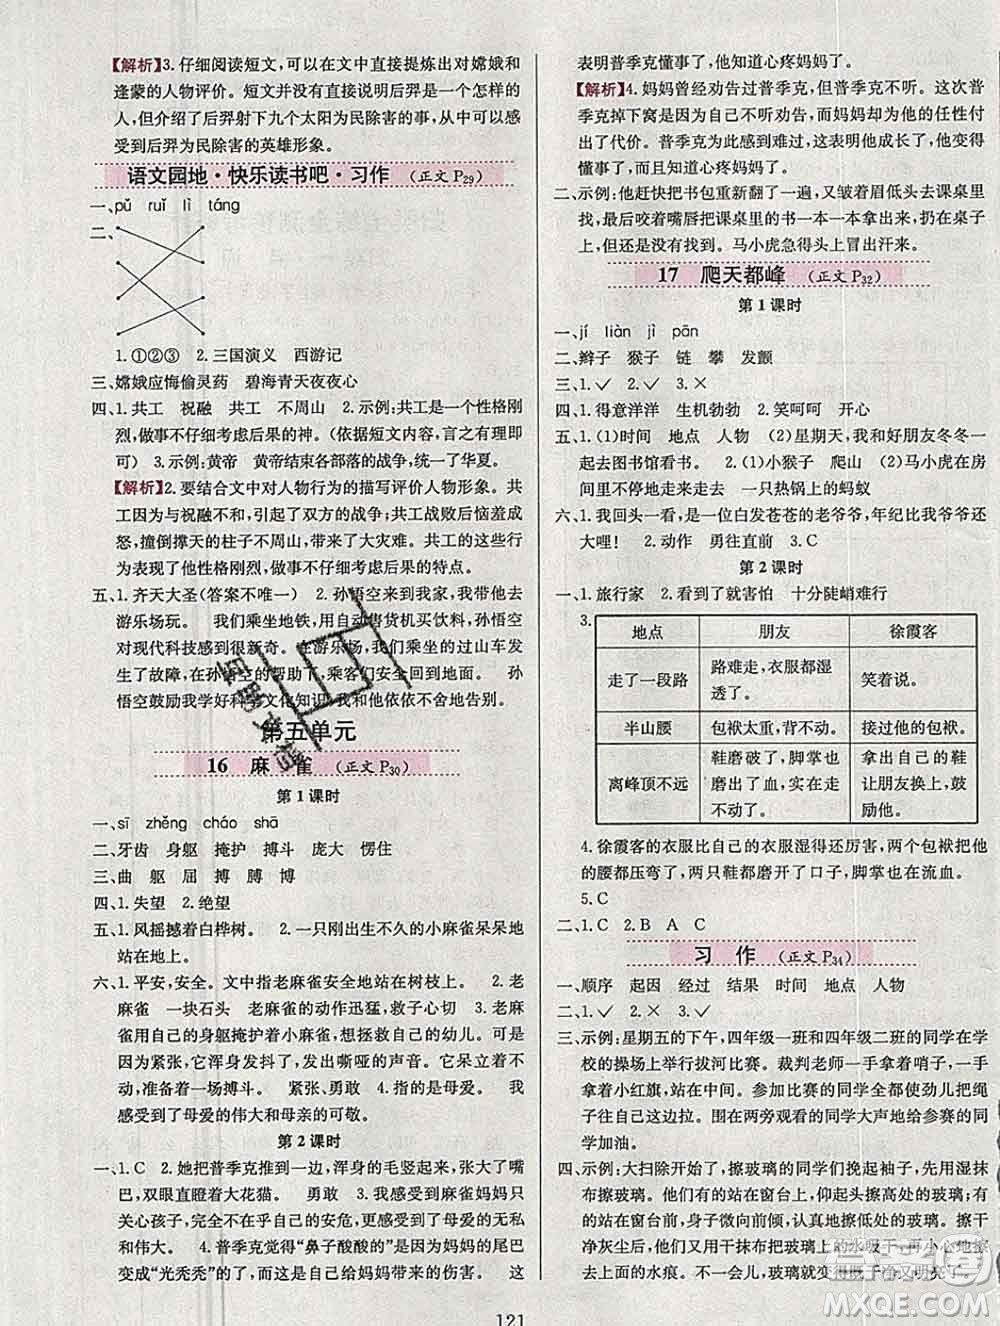 【解析】3.仔细阅读短文,可以在文中直接提炼出对嫦娥和
逢蒙的人物评价。短文并没有直接说明后羿是一个怎样的
人,但介绍了后羿射下九个太阳为民除害的事,从中可以感
受到后羿为民除害的英雄形象。
语文园地·快乐读书吧·习作 (正文P29)
一、pǔ ruǐ lì táng
二、
1.①②③ 2.三国演义 西游记
三、嫦娥应悔偷灵药 碧海青天夜夜心
四、1.共工 祝融 共工 不周山 2.示例:共工是一个性格刚
烈,做事不仔细考虑后果的人。(依据短文内容,言之有理即
可) 3.示例:黄帝 黄帝结束各部落的战争,统一了华夏。
【解析】2.要结合文中对人物行为的描写评价人物形象。共
工因为与祝融不和,引起了双方的战争,共工战败后恼羞成
怒,撞倒撑天的柱子不周山,导致了大灾难。共工的这些行
为,反映了他性格刚烈、做事不仔细考虑后果的特点。
五、1.齐天大圣(答案不唯一) 2.示例:孙悟空来到我家,我带他去
游乐场玩。 我们乘坐地铁,用自动售货机买饮料,孙悟空
对现代科技感到很新奇。 在游乐场,我们乘坐的过山车发
生了危险,在孙悟空的帮助下,乘客们安全回到地面。 孙
悟空鼓励我学好科学文化知识,我和他依依不舍地告别。
第五单元
16 麻雀 (正文P30)
第1课时
一、sī zhěng cháo shā
二、牙齿 身躯 掩护 搏斗 庞大 愣住
三、曲 躯 屈 搏 膊 博
四、1.失望 2.绝望
五、1.风摇撼着白桦树。 2.一只刚出生不久的小麻雀呆呆地
站在地上。
六、1.平安,安全。文中指老麻雀安全地站在树枝上。 2.老
麻雀 一块石头 老麻雀的动作迅猛,救子心切 3.老麻
雀用自己的身躯掩护着小麻雀,想拯救自己的幼儿。可是
因为紧张,它浑身发抖了,发出嘶哑的声音。它呆立着不动,
准备着一场搏斗。 紧张、勇敢 4.指的是母爱。 我
感受到了母爱的伟大和母亲的可敬。
第2课时
一、1.C 2.她把普季克推到一边,浑身的毛竖起来,张大了嘴
巴,双眼直瞪着大花猫。 勇敢 3.麻雀妈妈为了保护自己
的孩子,不顾自己的安危,我感受到了母爱的伟大、无私
和伟大。 4.普季克觉得“鼻子酸酸的”;麻雀妈妈的尾巴
变成“光秃秃”的;这是自己给妈妈带来的伤害。 这
表明普季克懂事了,他知道心疼妈妈了。
【解析】4.妈妈曾经劝告过普季克,但普季克不听。这次普季
克掉下了窝是因为自己不听劝告,而妈妈却为他的任性付
出了代价。普季克从这次冒险中知道自己成长了,他变得
懂事了,知道心疼妈妈了。
二、示例:他赶快把书包重新翻了一遍,又皱着眉头在课桌里
找,最后咬着嘴唇把课桌里的书一本一本地拿出来,扔在桌子
上,但还是没有找到。马小虎急得头上冒出汗来。
17 爬天都峰 (正文P32)
第1课时
一、jí liàn jì pān
二、辫子 猴子 链 攀 发颤
三、1.✓ 2.✓ 3.✕
四、1.得意洋洋 生机勃勃 2.笑呵呵 开心
五、1.(1)时间 地点 人物 (2)星期天,我和好朋友冬冬一
起去图书馆看书。 2.(1)小猴子 爬山 (2)马小虎在房
间里不停地走来走去 一只热锅上的蚂蚁
六、1.我回头一看,是一位白发苍苍的老爷爷,年纪比我爷爷还
大哩! 2.动作 勇往直前 3.C
第2课时
一、1.旅行家 2.看到了就害怕 十分陡峭难行
3.
地点 朋友 徐霞客
走了一段路 路难走,衣服都湿透了。 笑着说。
半山腰 包袱太重,背不动。 接过他的包袱。
离峰顶不远 鞋磨破了,脚磨出了血,走不动了。 拿出自己的鞋让朋友换上,鼓励他。
4.徐霞客的衣服比自己的衣服湿得还厉害,两个包袱把他
的腰都压弯了,鞋都磨开了口子,脚掌也在流血。
5.C
二、1.C 2.B A C
习作 (正文P34)
一、顺序 起因 经过 结果 时间 地点 人物
二、1.✓ 2.✕ 3.✓
三、示例:星期五的下午,四年级一班和四年级二班的同学在学
校的操场上举行拔河比赛。裁判老师一手拿着哨子,一手
拿着小红旗,站在中间。参加比赛的同学全都使劲儿把绳
子往自己这边拉。围在两旁观看的同学大声地给参赛的同
学加油。
四、示例:大扫除开始了,擦玻璃的同学们挽起袖子,先用湿抹
布擦玻璃。他们有的站在窗台上,踮起脚擦高处的玻璃;有
的站在窗台前,身子微微向前倾,认真地擦低处的玻璃。擦干
净灰尘后,他们又用干抹布把玻璃上的水吸干,再小心地擦
去上面的水痕。不一会儿,玻璃就变得既干净又明亮了。
121
MXQE.COM